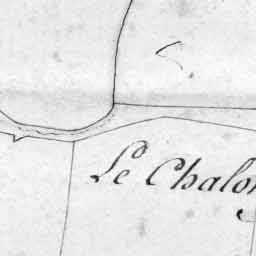 Le Chalon